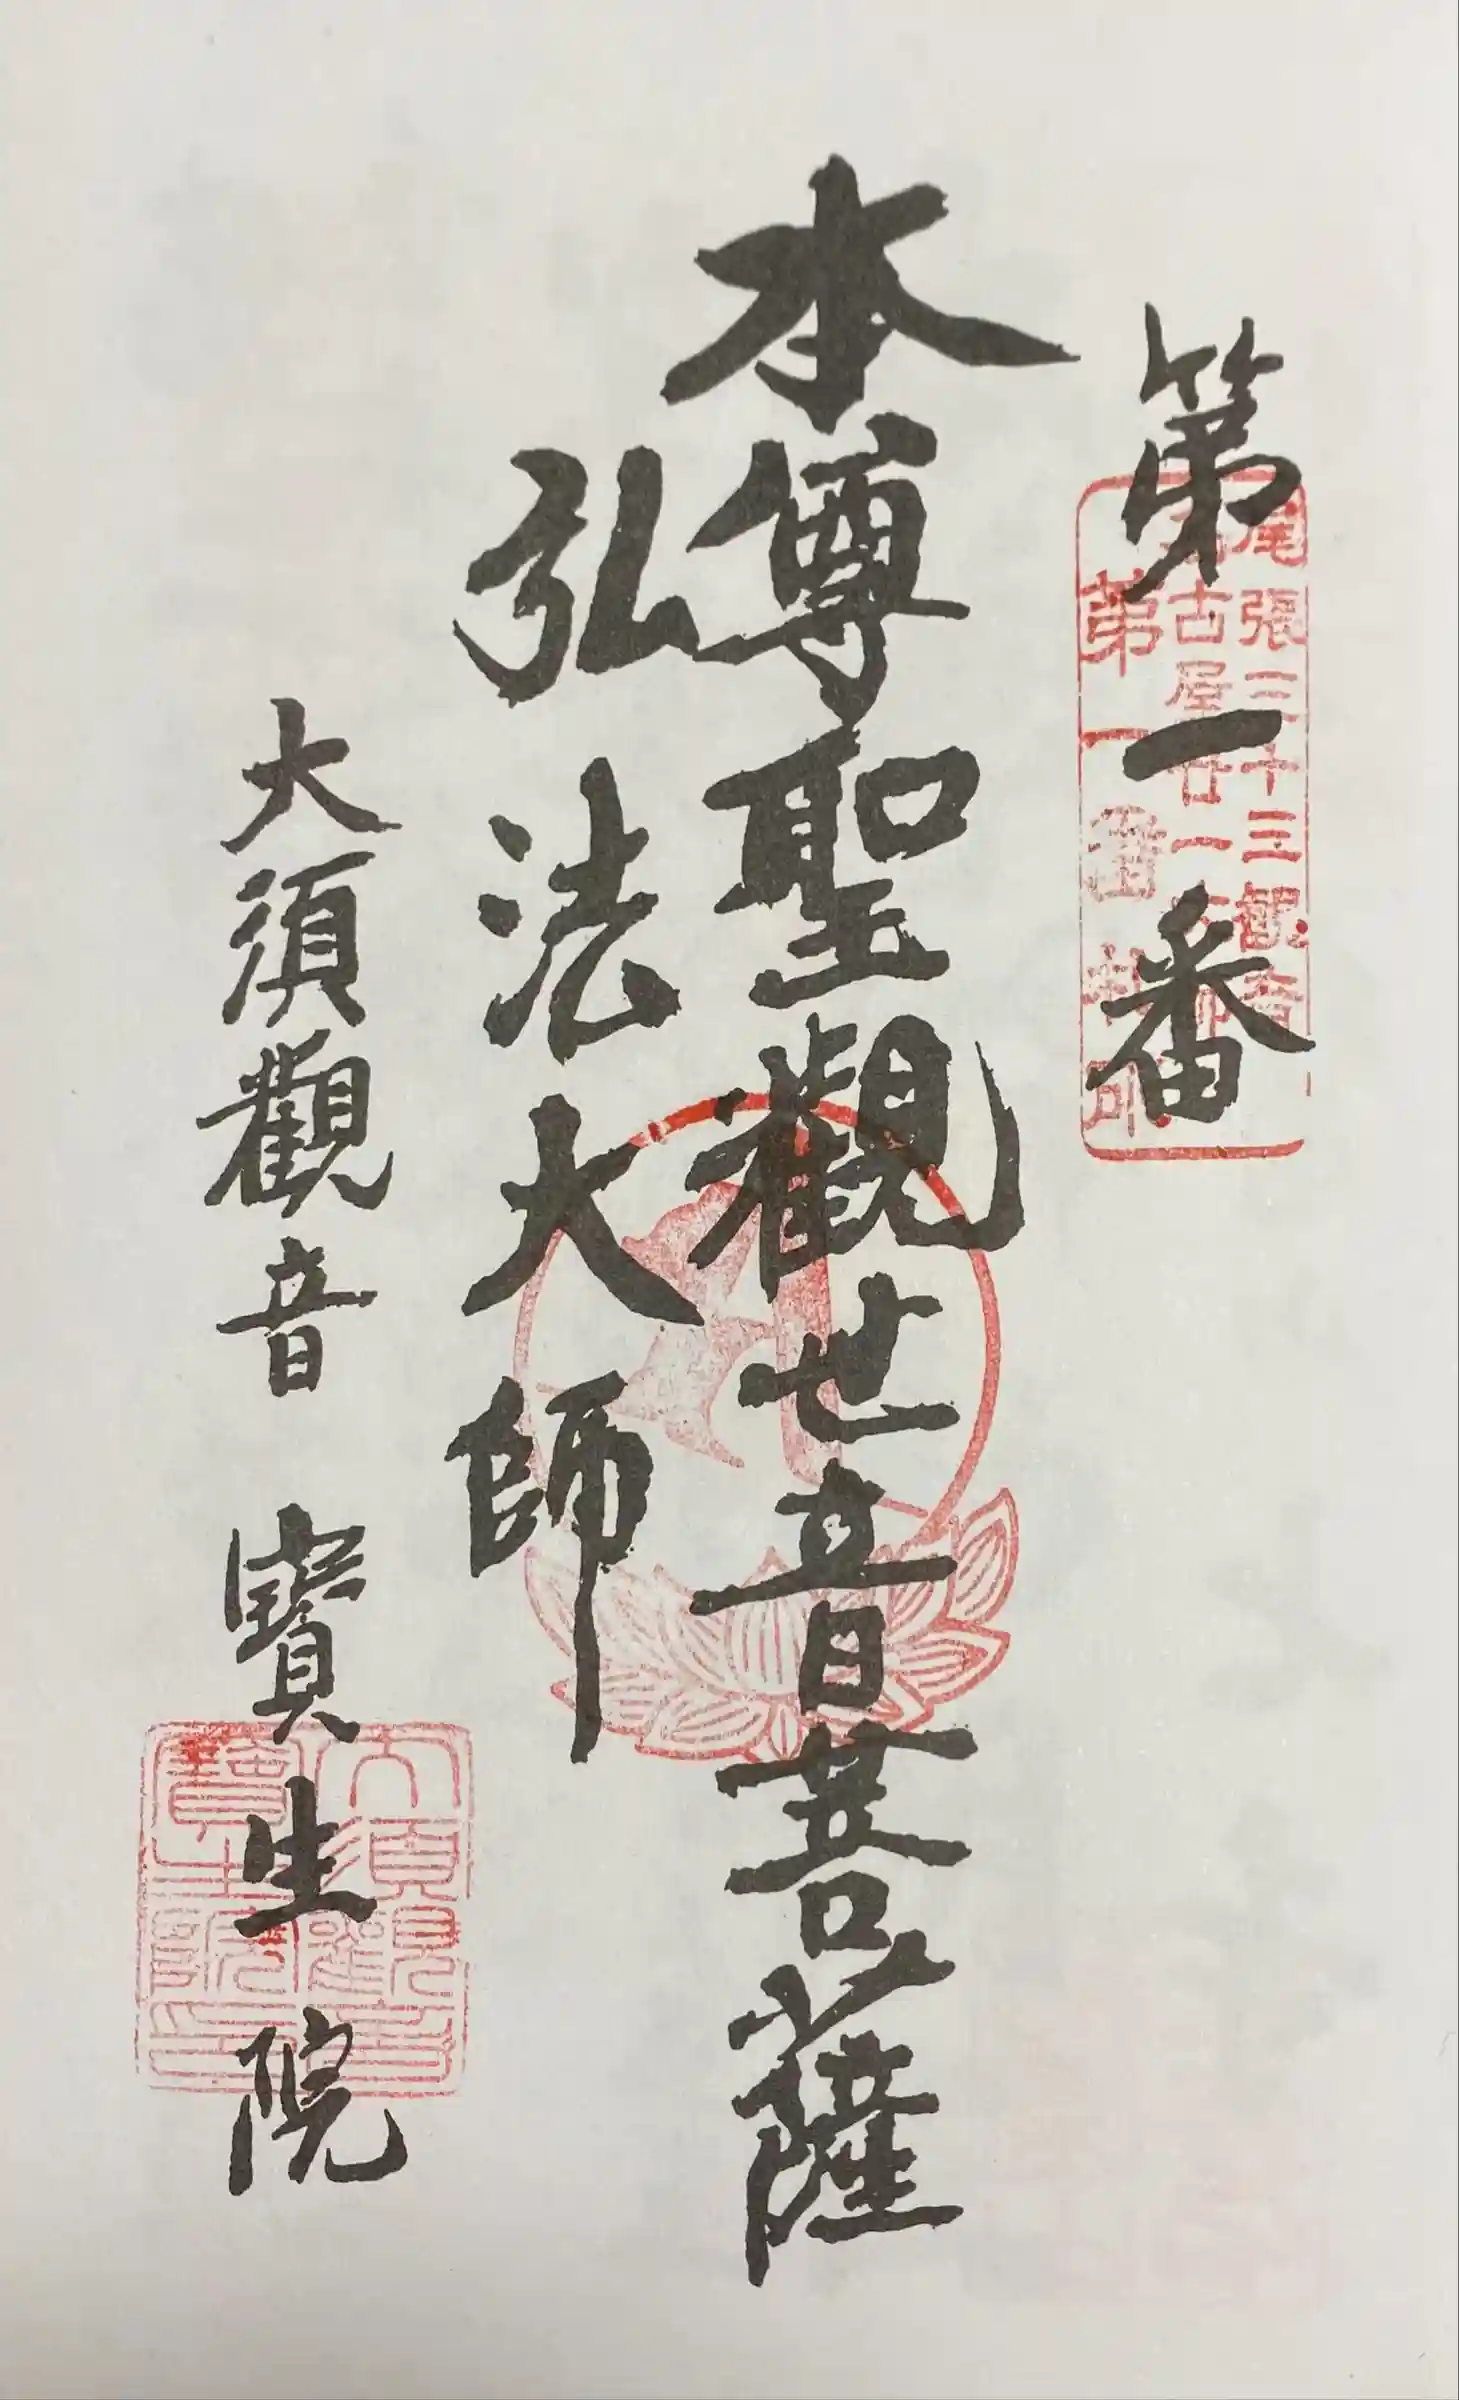 第一番
尾張三十三観音
名古屋廿一大師
第一番札所
本尊聖觀世音菩薩
弘法大師
大須觀音 寶生院
大須觀音
寶生院印